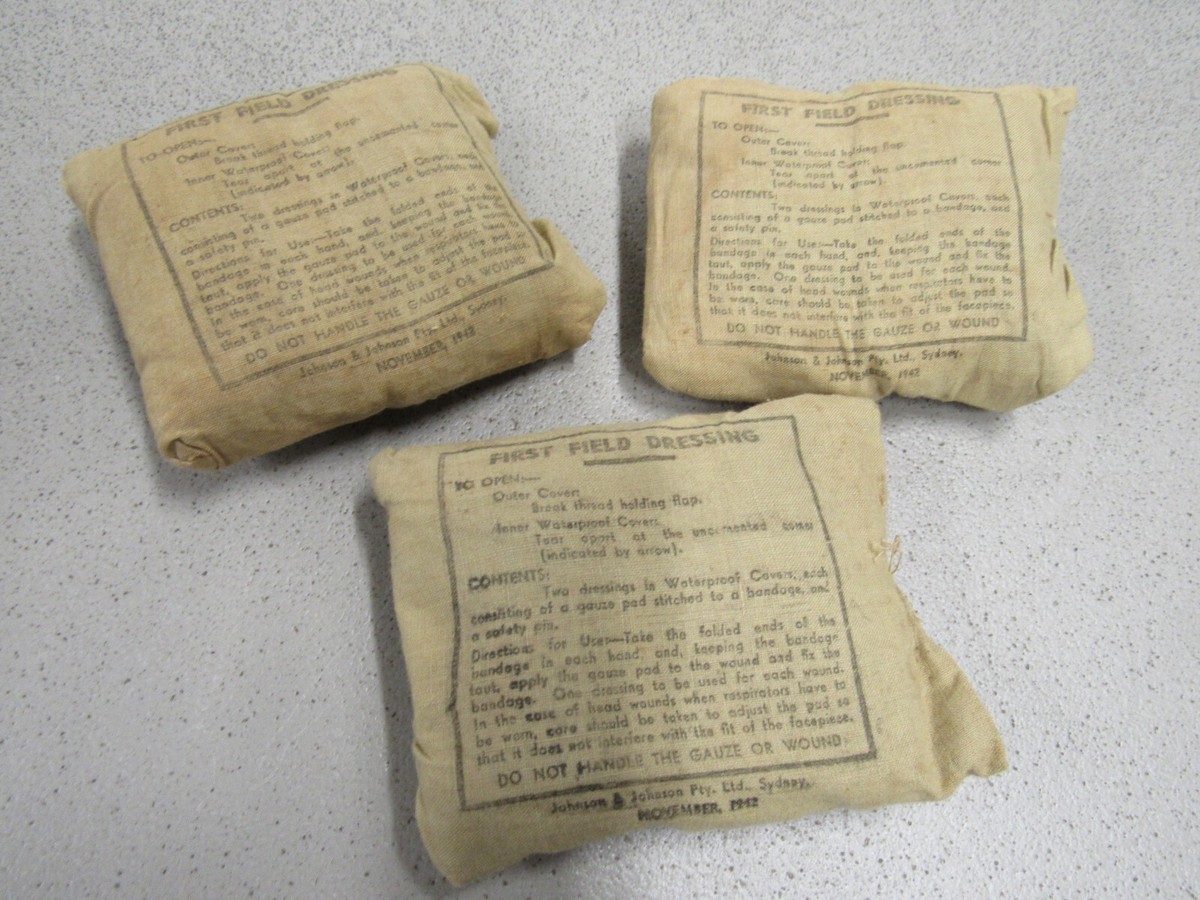 FIRST FIELD DRESSING
TO OPEN:—
Outer Cover:
Break thread holding flap.
Inner Waterproof Cover:
Tear apart at the uncemented corner
(indicated by arrow).
CONTENTS:
Two dressings in Waterproof Covers, each
consisting of a gauze pad stitched to a bandage, and
a safety pin.
Directions for Use:—Take the folded ends of the
bandage in each hand, and, keeping the bandage
taut, apply the gauze pad to the wound and fix the
bandage. One dressing to be used for each wound.
In the case of head wounds when respirators have to
be worn, care should be taken to adjust the pad so
that it does not interfere with the fit of the facepiece.
DO NOT HANDLE THE GAUZE OR WOUND
Johnson & Johnson Pty. Ltd., Sydney.
NOVEMBER, 1942
FIRST FIELD DRESSING
TO OPEN:—
Outer Cover:
Break thread holding flap.
Inner Waterproof Cover:
Tear apart at the uncemented corner
(indicated by arrow).
CONTENTS:
Two dressings in Waterproof Covers, each
consisting of a gauze pad stitched to a bandage, and
a safety pin.
Directions for Use:—Take the folded ends of the
bandage in each hand, and, keeping the bandage
taut, apply the gauze pad to the wound and fix the
bandage. One dressing to be used for each wound.
In the case of head wounds when respirators have to
be worn, care should be taken to adjust the pad so
that it does not interfere with the fit of the facepiece.
DO NOT HANDLE THE GAUZE OR WOUND
Johnson & Johnson Pty. Ltd., Sydney.
NOVEMBER, 1942
FIRST FIELD DRESSING
TO OPEN:—
Outer Cover:
Break thread holding flap.
Inner Waterproof Cover:
Tear apart at the uncemented corner
(indicated by arrow).
CONTENTS:
Two dressings in Waterproof Covers, each
consisting of a gauze pad stitched to a bandage, and
a safety pin.
Directions for Use:—Take the folded ends of the
bandage in each hand, and, keeping the bandage
taut, apply the gauze pad to the wound and fix the
bandage. One dressing to be used for each wound.
In the case of head wounds when respirators have to
be worn, care should be taken to adjust the pad so
that it does not interfere with the fit of the facepiece.
DO NOT HANDLE THE GAUZE OR WOUND
Johnson & Johnson Pty. Ltd., Sydney.
NOVEMBER, 1942